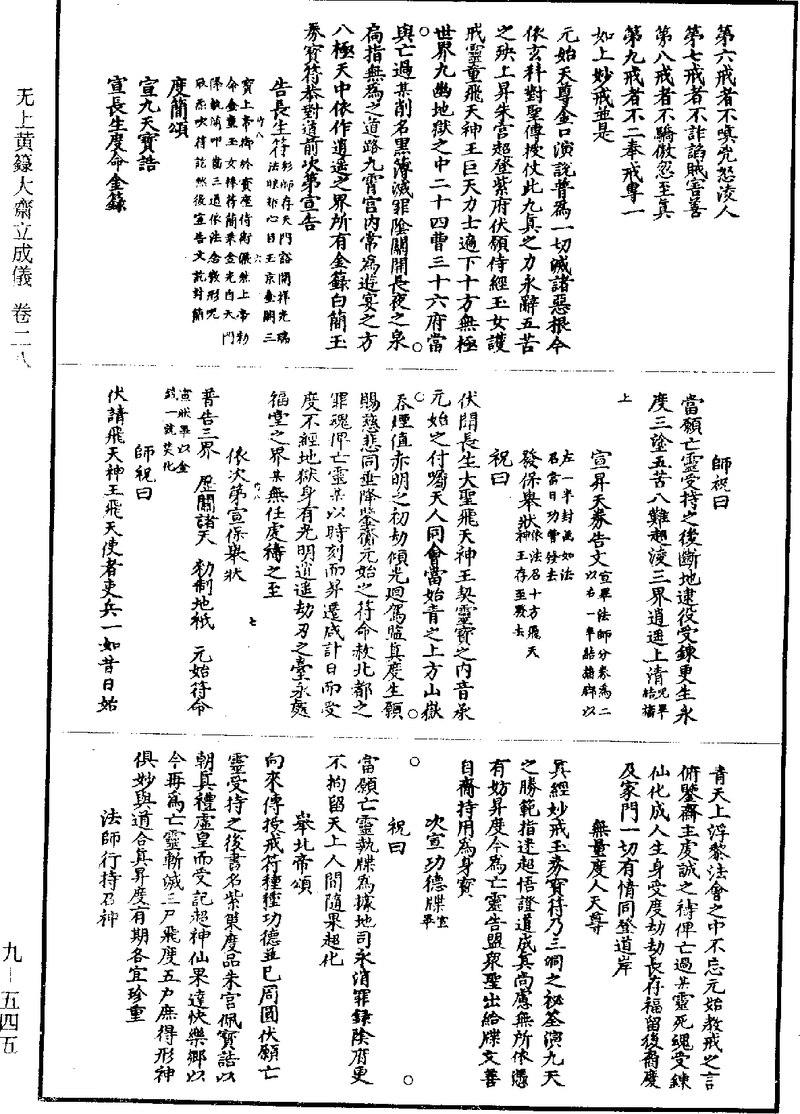 无上黄籙大齋立成儀 卷二八
第六戒者不嗔兇怒凌人
第七戒者不詐諂賊害善
第八戒者不驕傲忽至真
第九戒者不二奉戒專一
如上妙戒並是
元始天尊金口演說普為一切滅諸惡根今
依玄科對聖傳授仗此九真之力永辭五苦
之殃上昇朱宮超登紫府伏願侍經玉女護
戒靈童飛天神王巨天力士遍下十方無極
世界九幽地獄之中二十四曹三十六府當
與亡過某削名黑簿滅罪陰關開長夜之泉
扃指無為之道路九霄宮內常為遊宴之方
八極天中依作逍遥之界所有金籙白簡玉
券寶符恭對道前次第宣告
告長生符法師存天門谿開祥光瑞
心目玉京金闕三
寶上帝御於寶座侍衛儼然上帝勑
命金童玉女捧符簡乘金光自天門
降敕簡叩齒三通依法念
炁吹符訖然後宣告文訖封簡
度簡頌
宣九天寶誥
宣長生度命金籙
師祝曰
當願亡靈受持之後斷地逮役受鍊更生永
度三塗五苦八難超淩三界逍遥上清
上
宣昇天券告文宣畢法師分券為二
以右一半結璘以
左一半封函如法
召當日功曹發去
發保舉狀依法召十方飛天
神王存至發去
祝曰
伏聞長生大聖飛天神王契靈寶之内音承
元始之付囑天人同會當始青之上方山獄
吞煙值赤明之初劫傾光廻駕監真度生願
賜慈悲同垂降鑒瀆元始之符命赦北都之
罪魂俾亡靈某以時刻而昇遷咸計日而受
度不經地獄身有光明逍遥劫刃之臺永處
福堂之界某無任虔禱之至
依次第宣保舉狀
七
普告三界 歷關諸天 勑制地祇 元始符命
宣狀畢以金
錢一說焚化
師祝曰
伏請飛天神王飛天使者吏兵一如昔日始
青天上浮黎法會之中不忘元始教戒之言
俯鑒齋主虔誠之禱俾亡過某靈死魂受鍊
仙化成人生身受度劫劫長存福留後裔慶
及家門一切有情同登道岸
無量度人天尊
真經妙戒玉券寶符乃三洞之祕筌演九天
之勝範指迷超悟證道成真尚慮無所依憑
有妨昇度今為亡靈告盟衆聖出給牒文善
自齎持用為身寶
次宣功德牒宣畢
祝曰
當願亡靈執牒為據地司永消罪錄陰府更
不拘留天上人間隨果超化
舉北帝頌
向來傳授戒符種種功德並已周圓伏願亡
靈受持之後書名紫東度品朱宮佩寶誥以
朝真禮虛皇而受記超神仙果達快樂鄉以
今再為亡靈斬滅三尸飛度五户庶得形神
俱妙與道合真昇度有期各宜珍重
法師行持召神
九－五四五